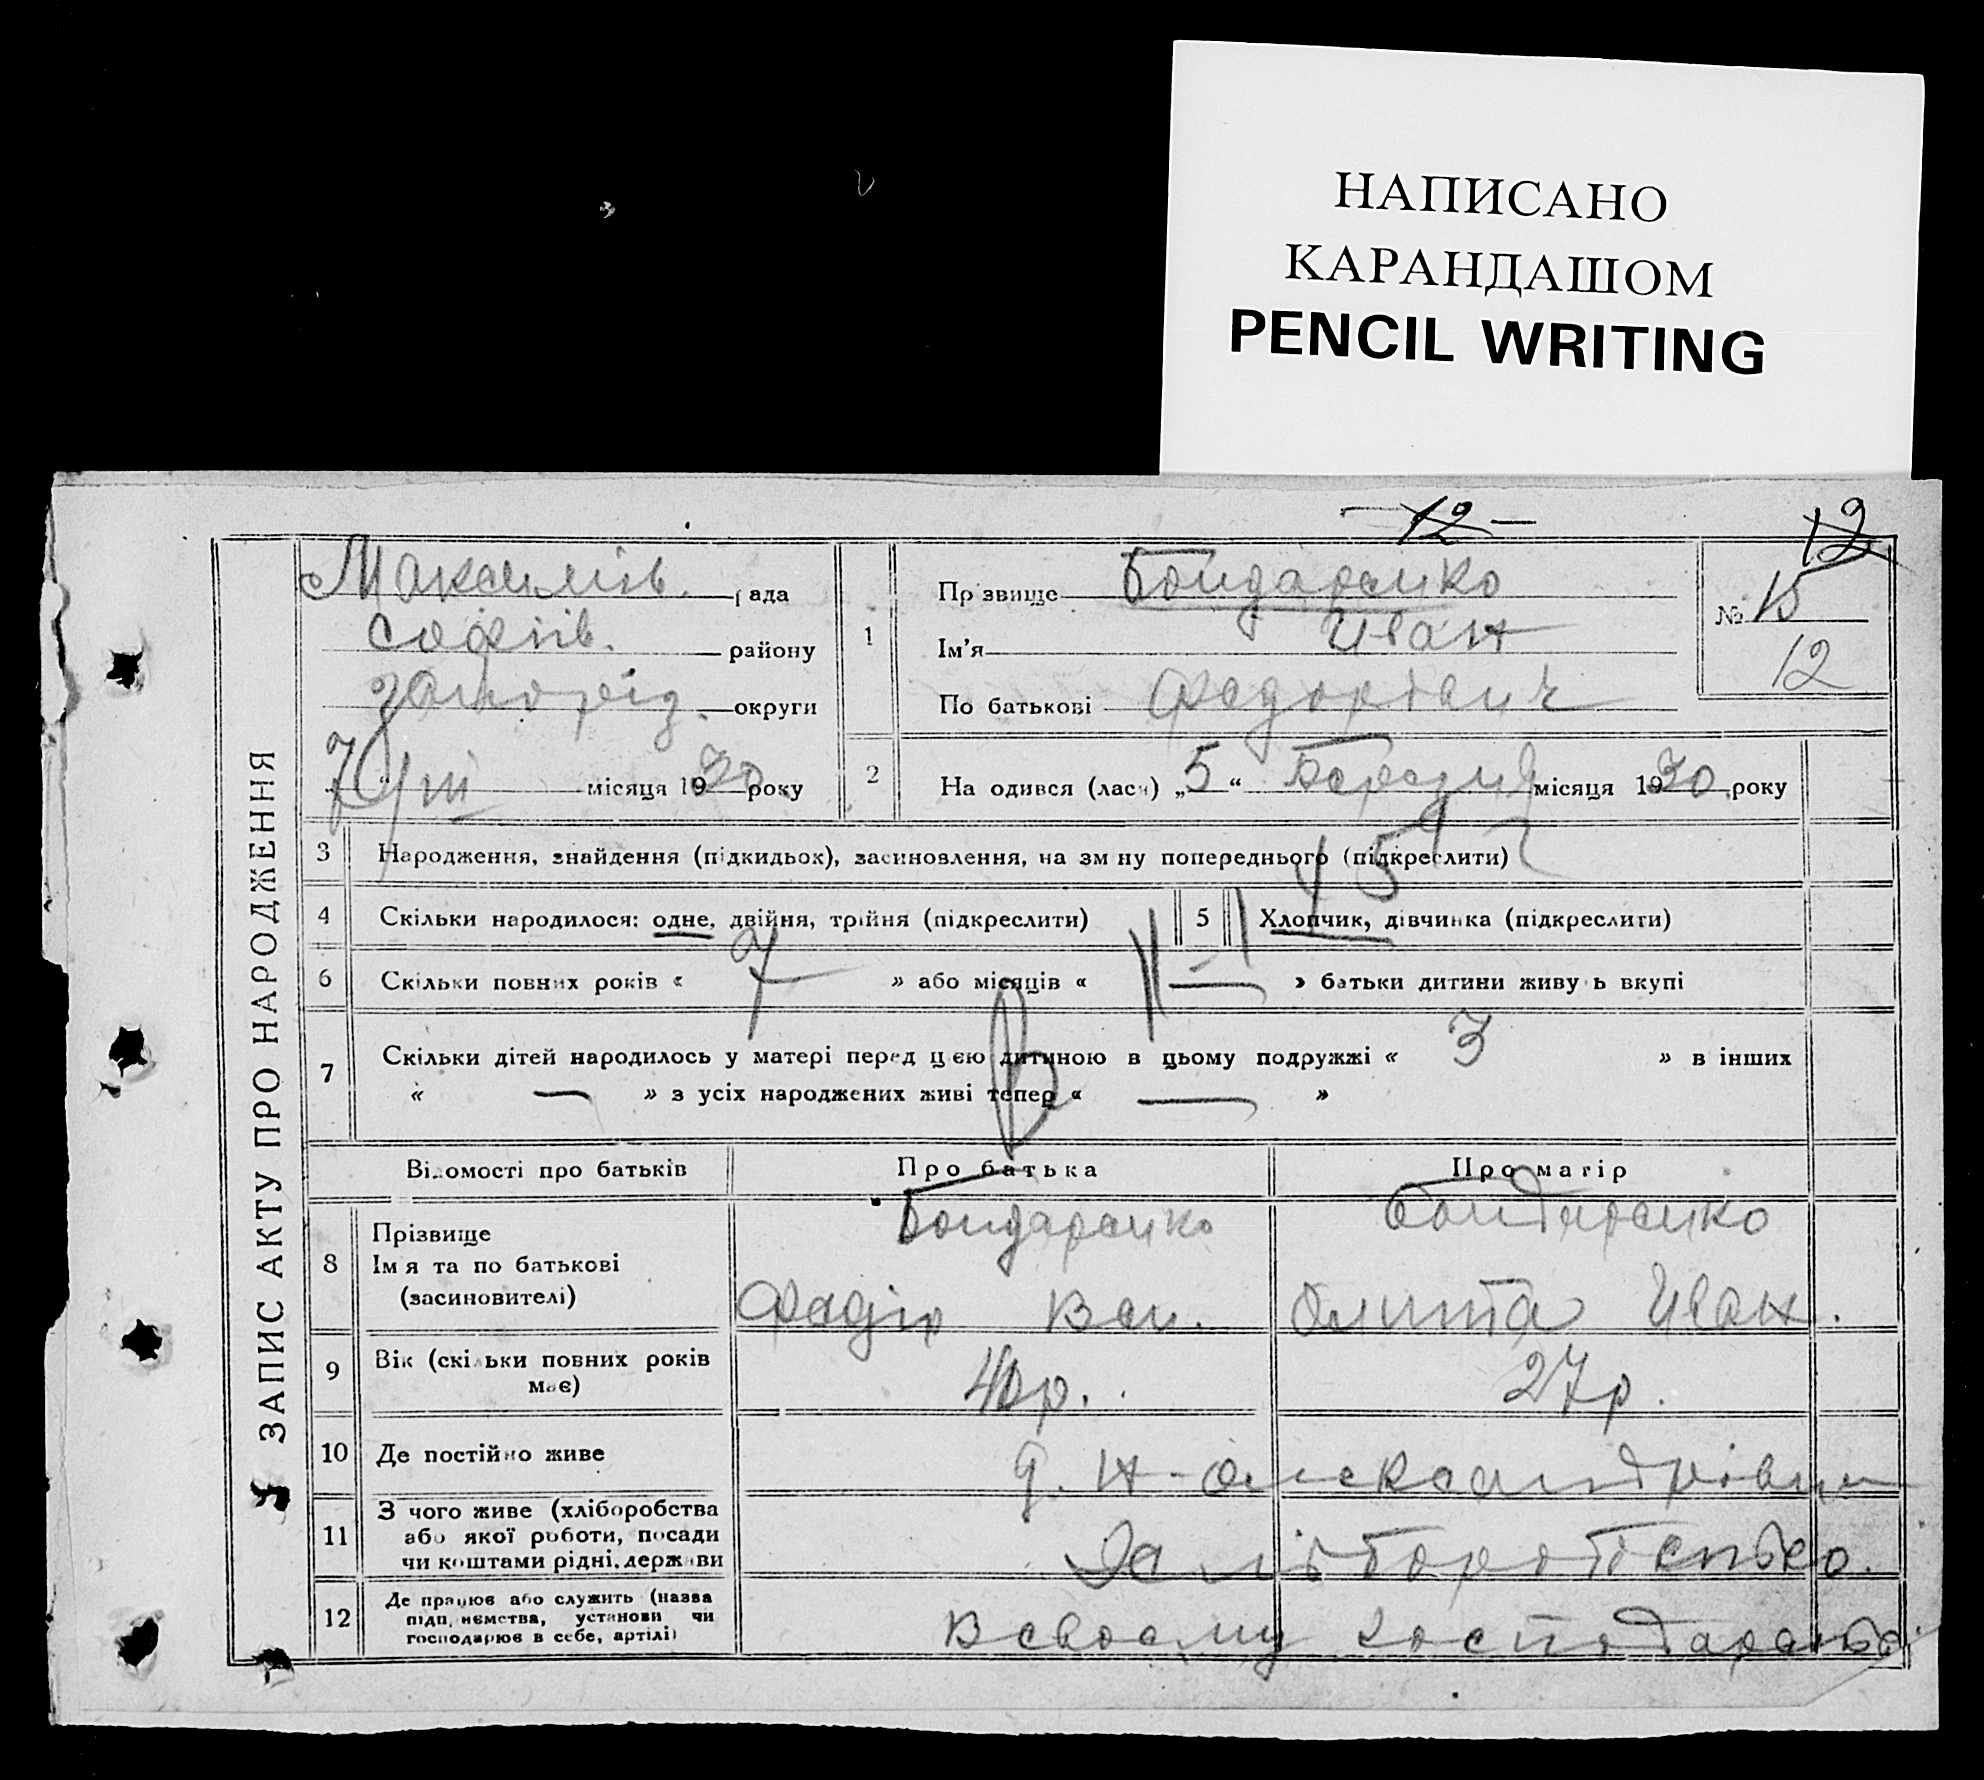 НАПИСАНО
КАРАНДАШОМ
PENCIL WRITING
12
12
ЗАПИС АКТУ ПРО НАРОДЖЕННЯ
Максимів. рада
Софіїв. району
Запоріз. округи
7/III місяця 1930 року
1
Прізвище Бондаренко
Ім'я Иван
По батькові Федорович
№ 15
12
2 Народився (лась) „5“ Березня місяця 1930 року
3 Народження, знайдення (підкидьок), засиновлення, на зміну попереднього (підкреслити)
4 Скільки народилося: одне, двійня, трійня (підкреслити)
5 Хлопчик, дівчинка (підкреслити)
6 Скільки повних років « 7 » або місяців « — » батьки дитини живуть вкупі
7 Скільки дітей народилось у матері перед цією дитиною в цьому подружжі « 3 » в інших
« — » з усіх народжених живі тепер « — »
Відомості про батьків Про батька Про матір
8 Прізвище
Ім'я та по батькові
(засиновителі)
Бондаренко Бондаренко
Федір Вас. Олита Иван.
9 Вік (скільки повних років
має)
40р. 27р.
10 Де постійно живе
Н-Олександрівка
11 З чого живе (хліборобства
або якої роботи, посади
чи коштами рідні, держави
Хліборобством.
12 Де працює або служить (назва
підприємства, установи чи
господарює в себе, артілі)
В своему господарстві